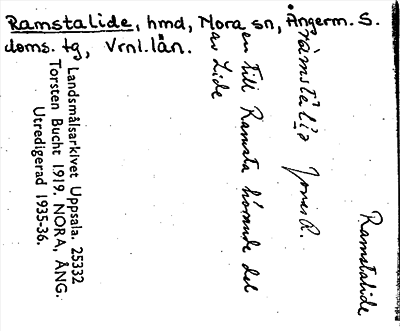 Ramstalide, hmd, Nora sn, Ångerm. S.
doms. tg, Vrnl. län.
Ramstalide
Jones R.
en till Ramsta hörande del
av Lide
Landsmålsarkivet Uppsala. 25332
Torsten Bucht 1919. NORA, ÅNG.
Utredigerad 1935-36.